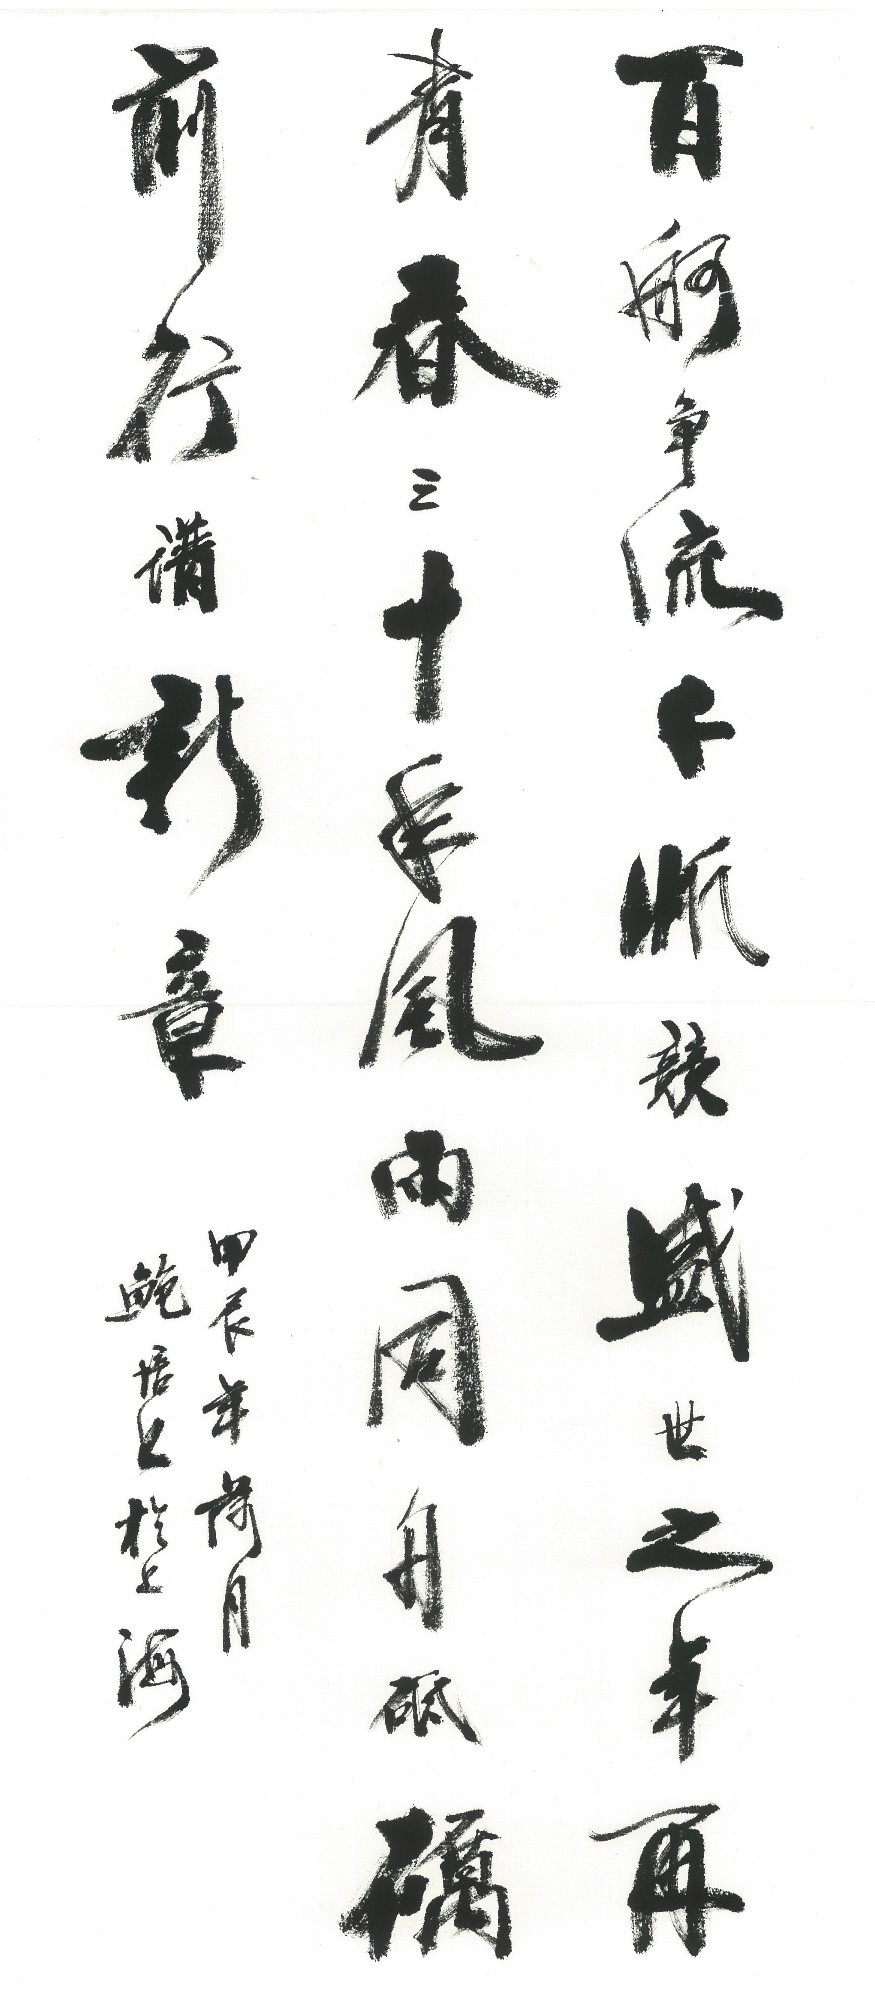 百舸争流千帆競盛世之年再
青春三十年風雨同舟砥礪
前行譜新章
甲辰年荷月
鲍培上於上海